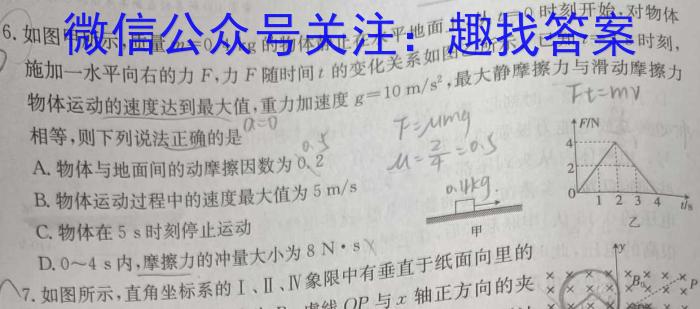 微信公众号关注：趣找答案
6. 如图 所示 质量 kg的物体 止在水平地面 0时刻开始,对物体
施加一水平向右的力 F,力 F 随时间 t 的变化关系如图 时刻,
物体运动的速度达到最大值,重力加速度 g=10 m/s²,最大静摩擦力与滑动摩擦力
相等,则下列说法正确的是
a=0
Ft=mv
F=μmg
μ=2/4=0.5
0.5
A. 物体与地面间的动摩擦因数为 0.2
B. 物体运动过程中的速度最大值为 5 m/s
C. 物体在 5 s 时刻停止运动
D. 0~4 s 内,摩擦力的冲量大小为 8 N·s
0.4kg
甲
F/N
4
2
0 1 2 3 4 t/s
乙
7. 如图所示,直角坐标系的 Ⅰ、Ⅱ、Ⅳ象限中有垂直于纸面向里的
虚线 OP 与 x 轴正方向的夹
y
B
P